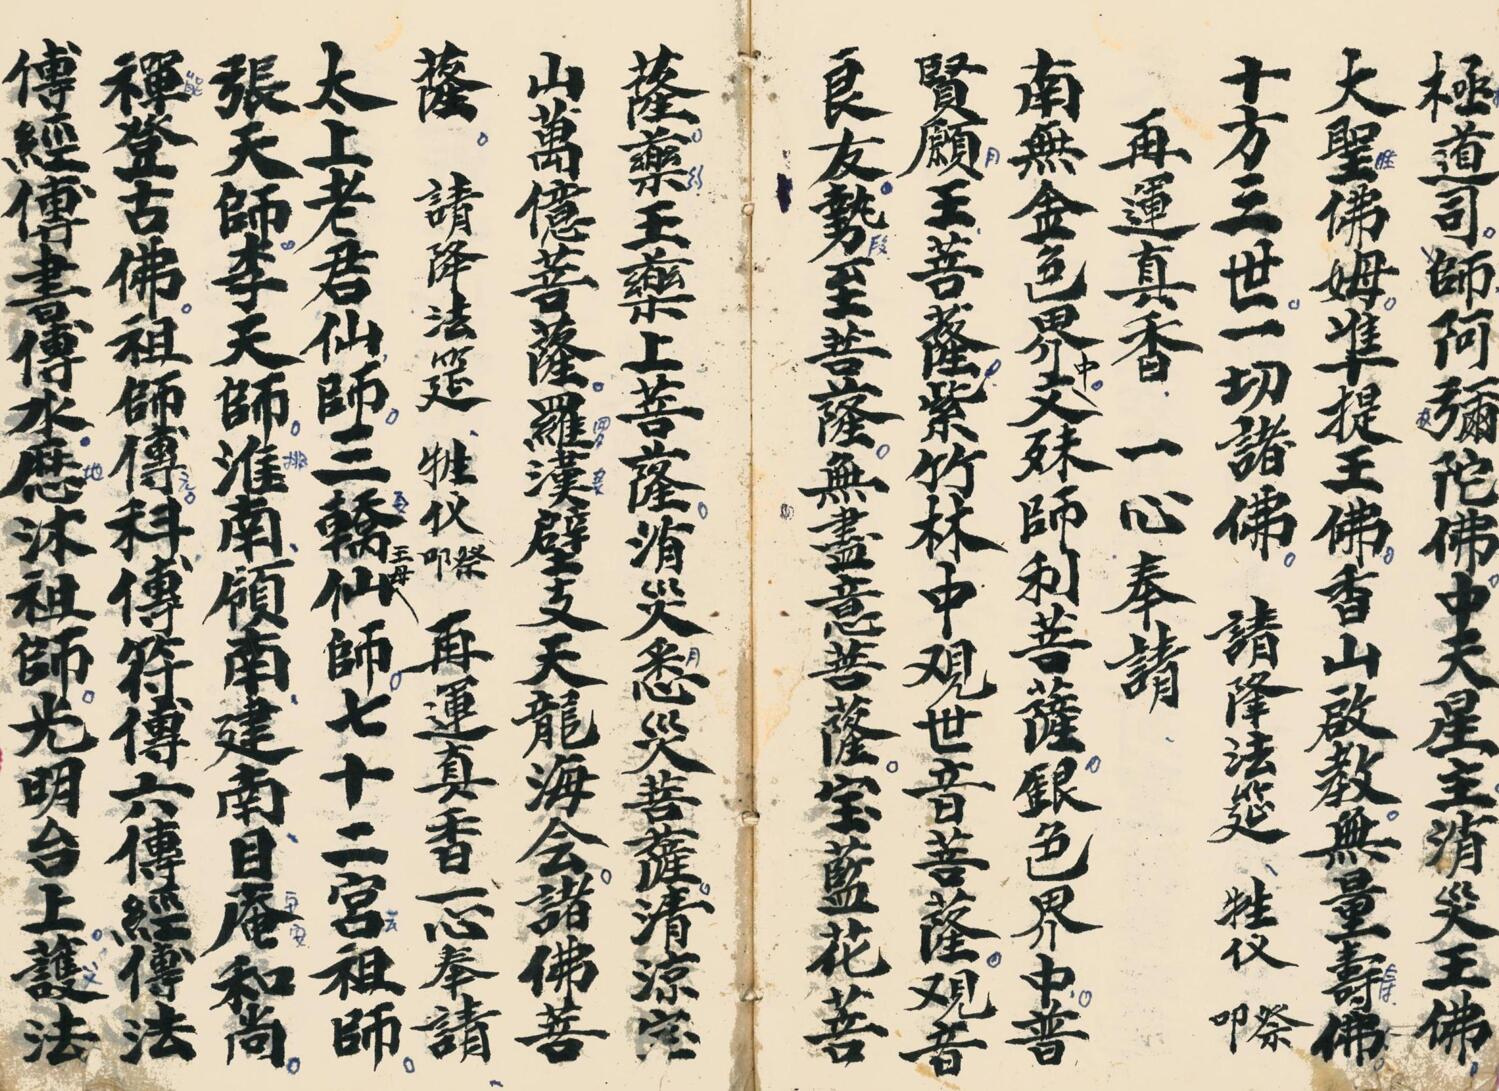 極道司師阿彌陀佛中天星主消災王佛
大聖佛姆準提王佛香山啟教無量壽佛
十方三世一切諸佛　請降法筵　牲仪　叩祭
再運真香　一心奉請
南無金色界中文殊師利菩薩銀色界中普
賢願王菩薩紫竹林中观世音菩薩观音
良友勢至菩薩無盡意菩薩宝藍花菩
薩藥王藥上菩薩消災悉災菩薩清涼宝
山萬億菩薩羅漢壁支天龍海会諸佛菩
薩　請降法筵　牲仪　叩祭　再運真香一心奉請
太上老君仙師三轎王母仙師七十二宮祖師
張天師李天師淮南頎南建南目庵和尚
禪登古佛祖師傳科傳符傳六傳經傳法
傳經傳書傳水歴沐祖師光明台上護法